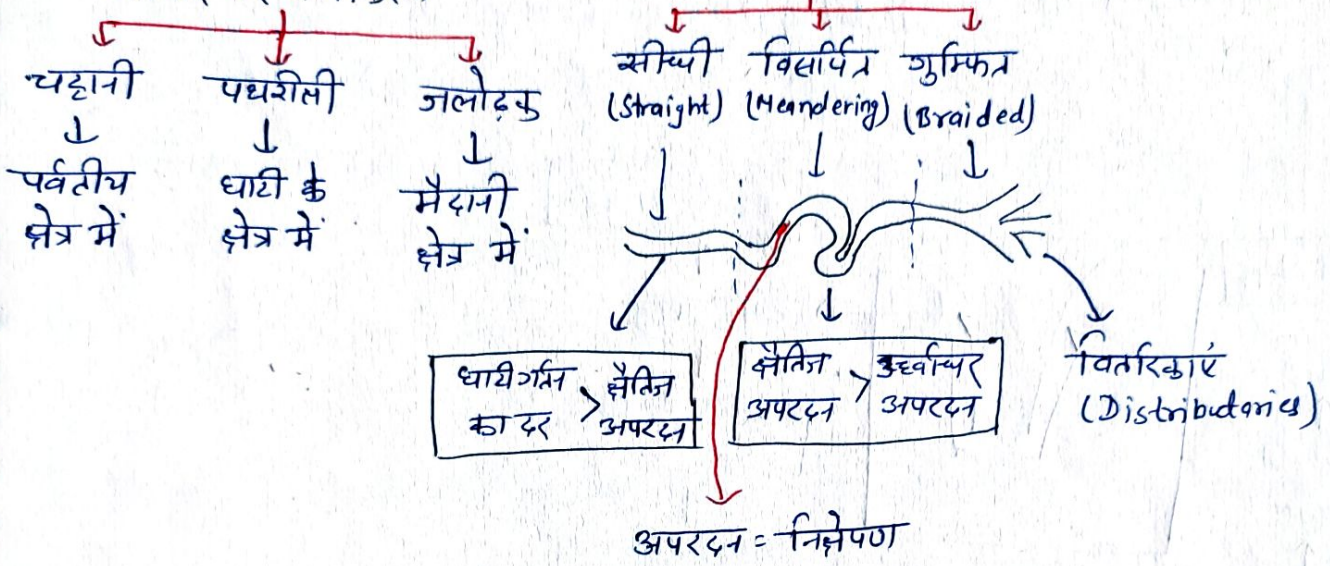 चट्टानी
पर्वतीय
क्षेत्र में
पथरीली
घाटी के
क्षेत्र में
जलोढ़क
मैदानी
क्षेत्र में
सीधी
(Straight)
विसर्पित
(Meandering)
गुम्फित
(Braided)
घाटी गर्तन
का दर
>
क्षैतिज
अपरदन
क्षैतिज
अपरदन
>
उर्ध्वाधर
अपरदन
वितरिकाएं
(Distributaries)
अपरदन = निक्षेपण